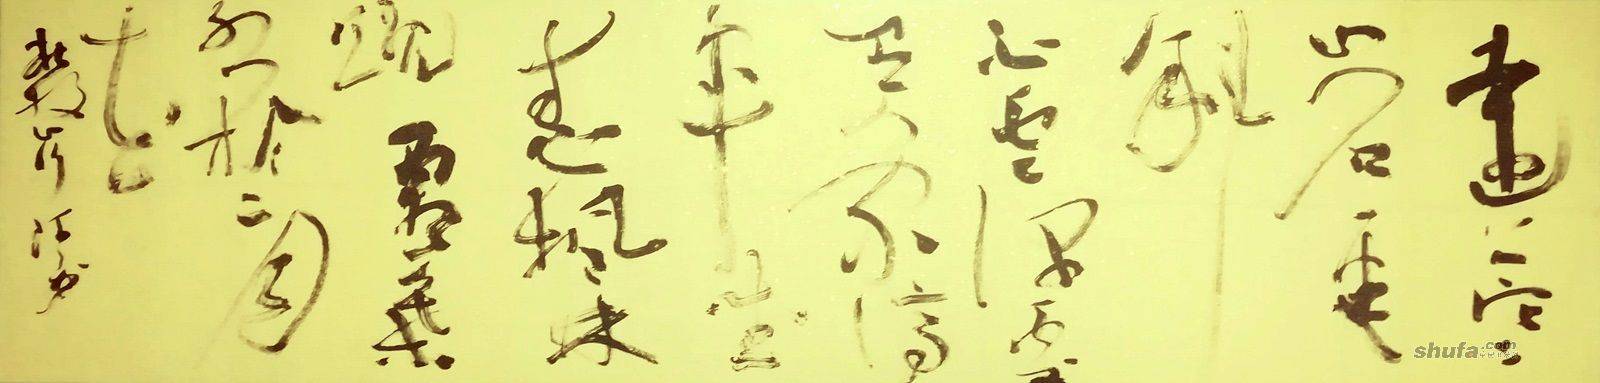 遠上寒
山石徑
斜
白雲深處
有人家停
車坐
愛楓林
晚霜葉
紅於二月
花
shufa.com